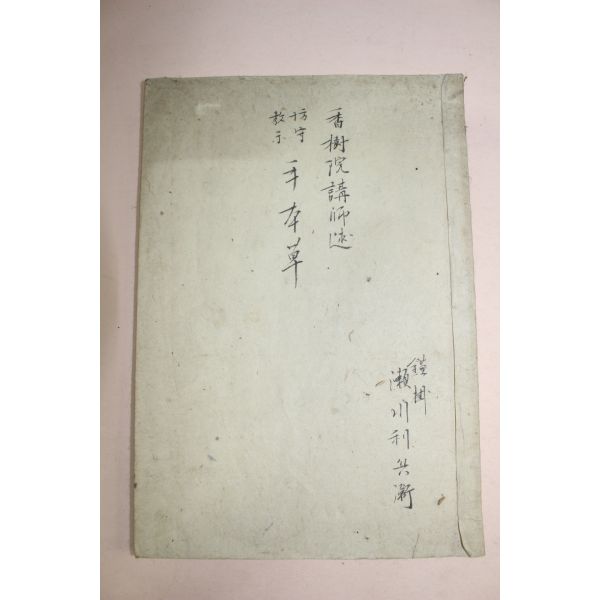 香樹院講師述
坊守
教示
手本草
鎧掛
瀬川利兵衛